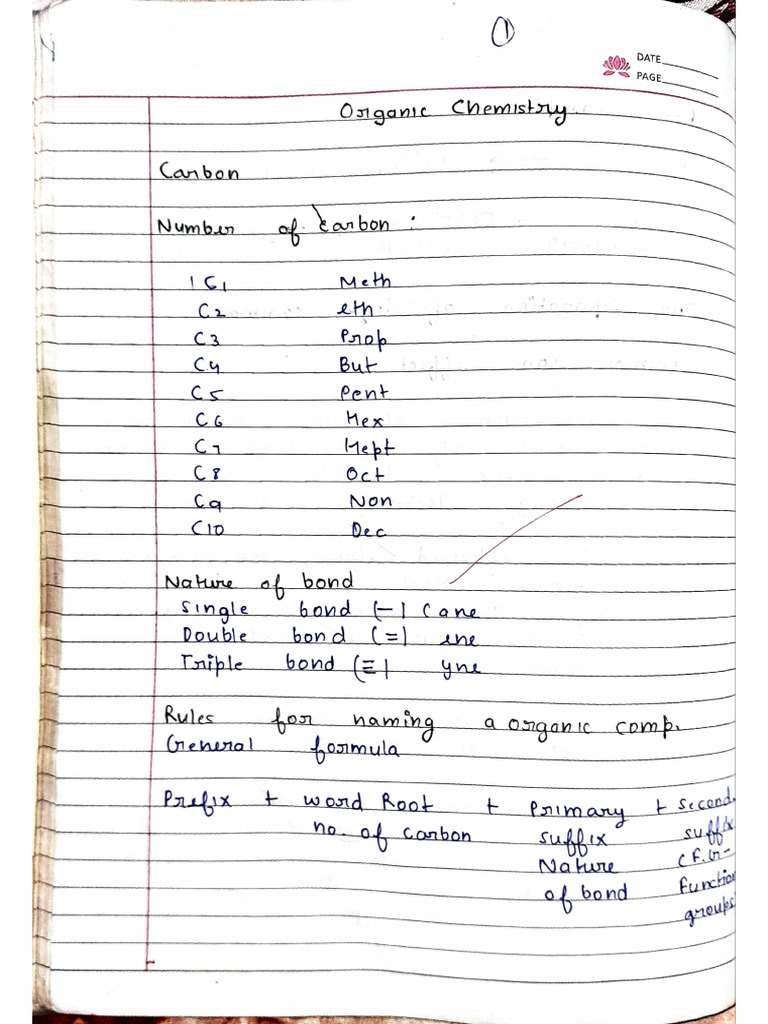 ①
DATE
PAGE
Organic Chemistry
Carbon
Number of carbon :
C1 Meth
C2 eth
C3 Prop
C4 But
C5 Pent
C6 Hex
C7 Hept
C8 Oct
C9 Non
C10 Dec
Nature of bond
Single bond (—) (ane
Double bond (=) ene
Triple bond (≡) yne
Rules for naming a organic comp.
General formula
Prefix + word Root + Primary + Second.
no. of carbon suffix suffix
Nature
of bond function
groups